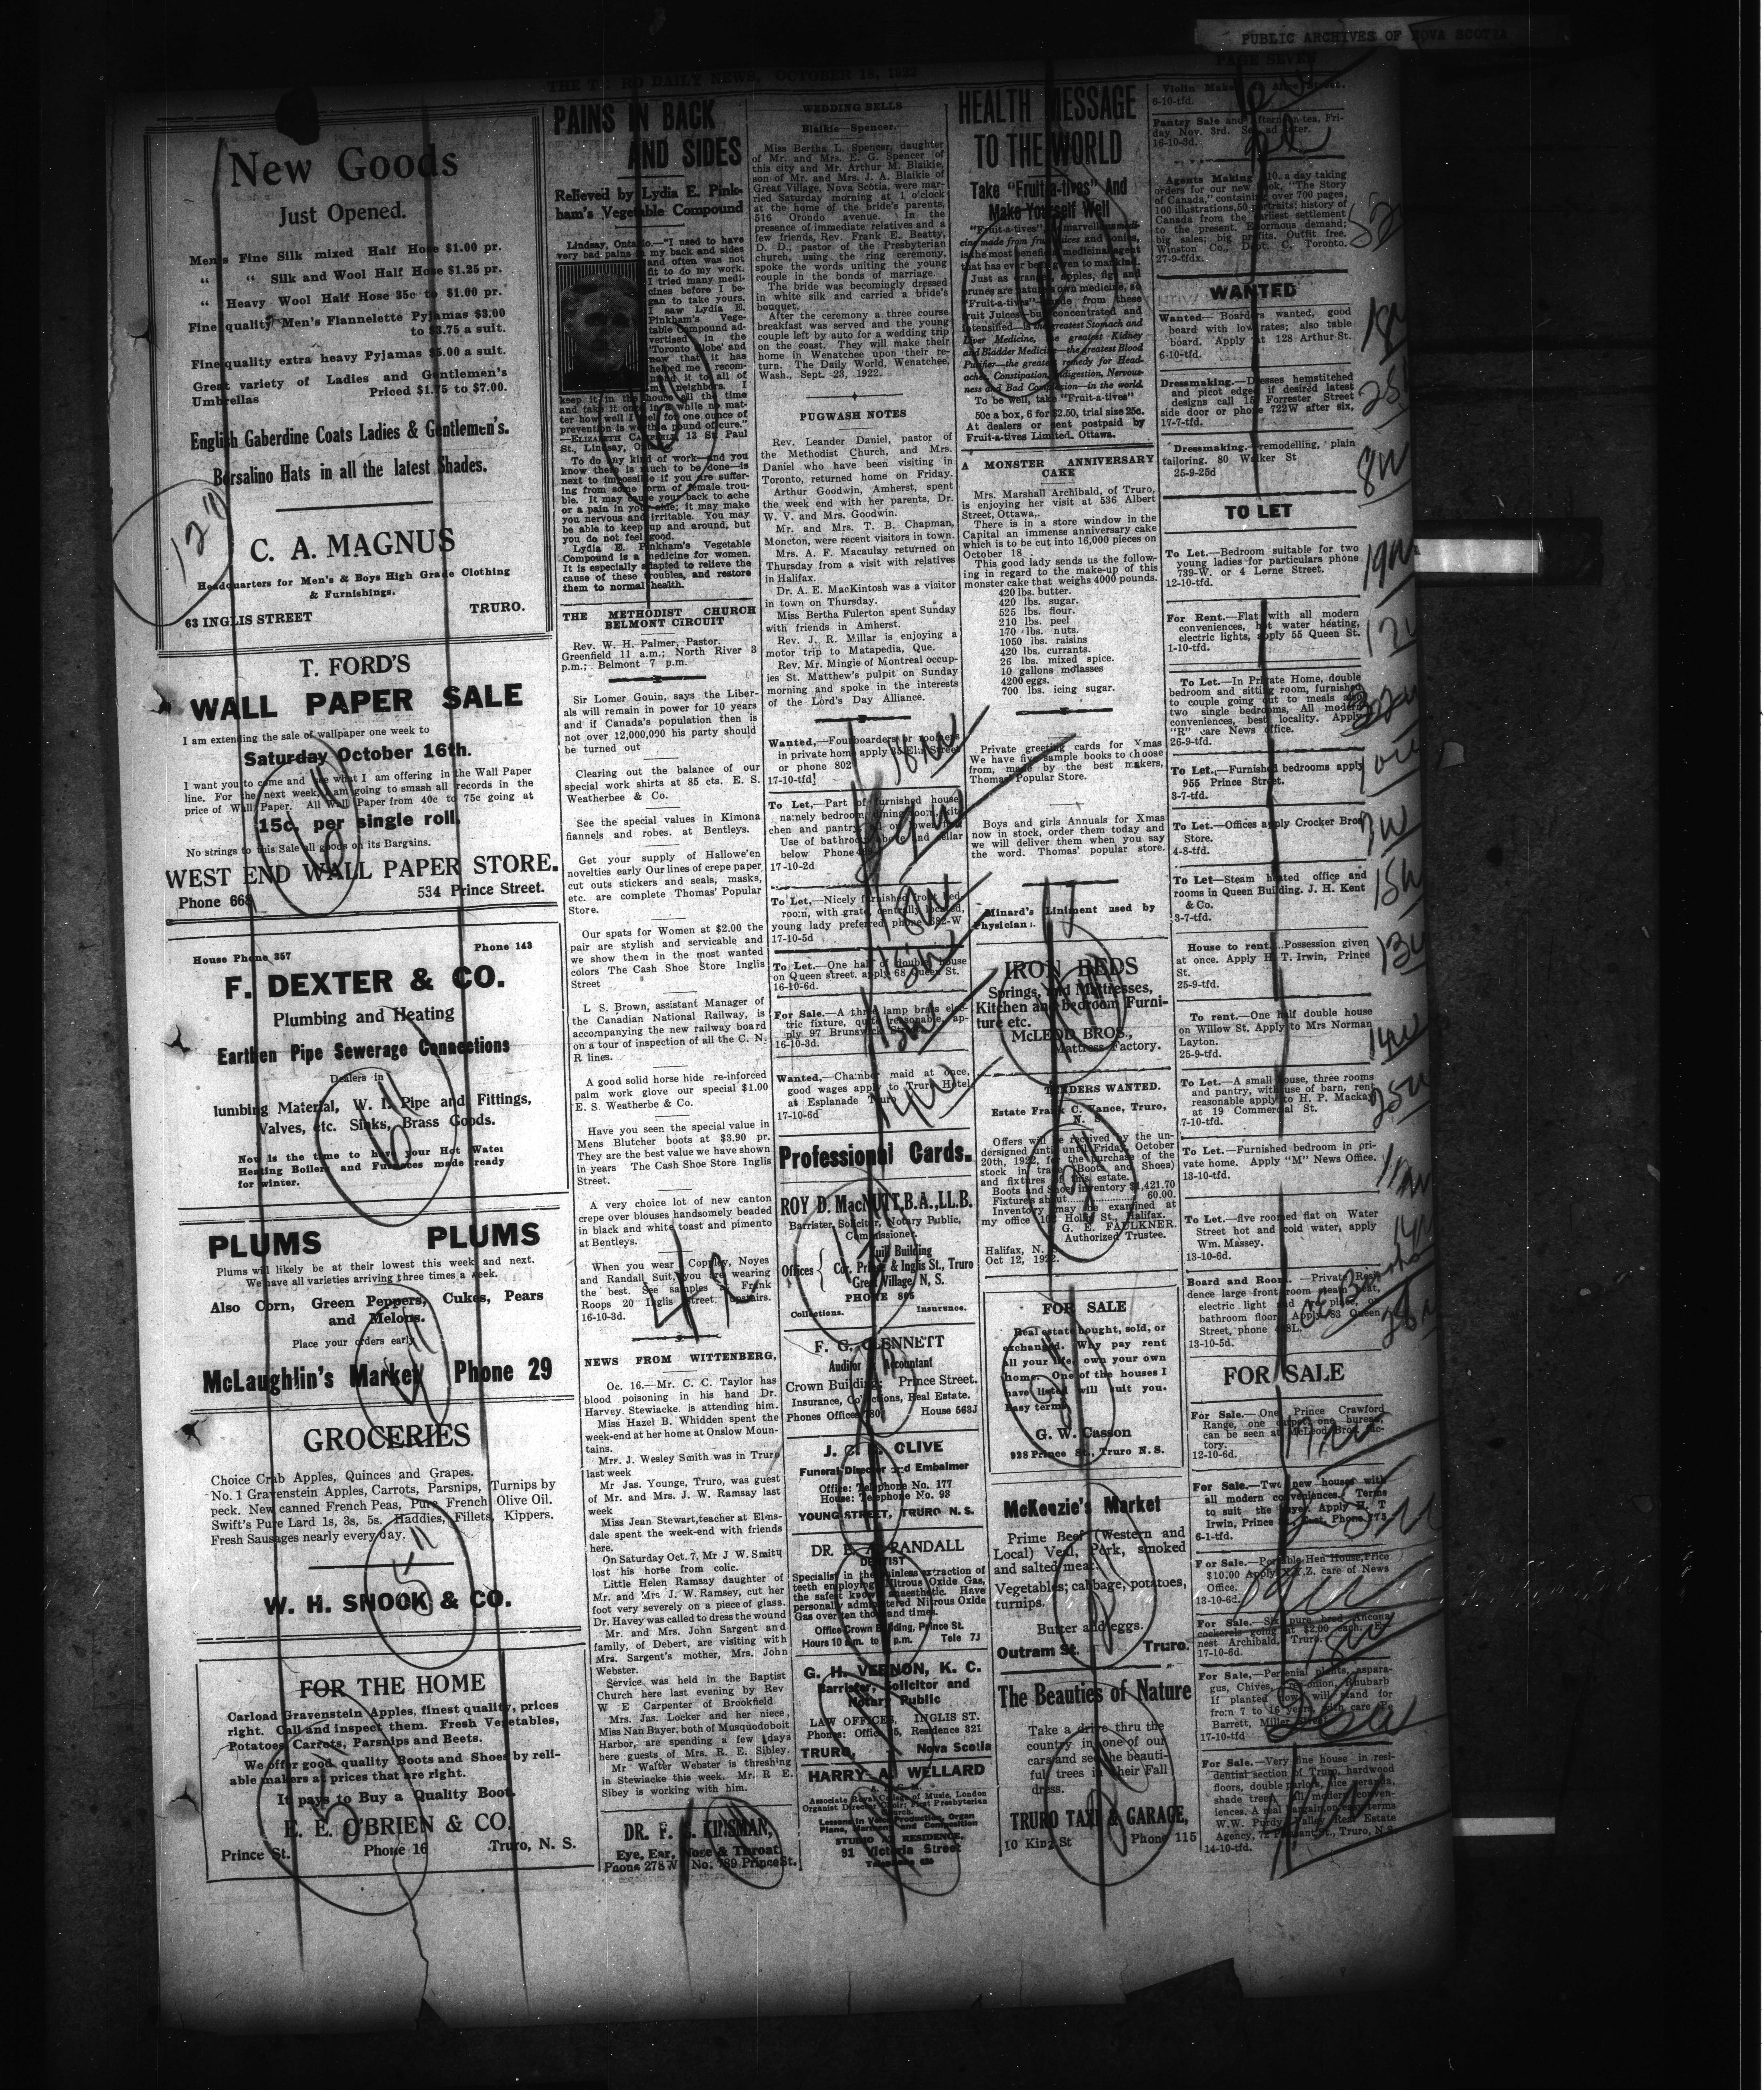 PUBLIC ARCHIVES OF NOVA SCOTIA
PAGE SEVEN
DAILY NEWS, OCTOBER 18, 1922
New Goods
Just Opened.
Men's Fine Silk mixed Half Hose $1.00 pr.
“ “ Silk and Wool Half Hose $1.25 pr.
“ Heavy Wool Half Hose 35c to $1.00 pr.
Fine quality Men's Flannelette Pyjamas $3.00
to $3.75 a suit.
Fine quality extra heavy Pyjamas $5.00 a suit.
Great variety of Ladies and Gentlemen's
Umbrellas Priced $1.75 to $7.00.
English Gaberdine Coats Ladies & Gentlemen's.
Borsalino Hats in all the latest Shades.
C. A. MAGNUS
Headquarters for Men's & Boys High Grade Clothing
& Furnishings.
63 INGLIS STREET TRURO.
T. FORD'S
WALL PAPER SALE
I am extending the sale of wallpaper one week to
Saturday October 16th.
I want you to come and see what I am offering in the Wall Paper
line. For the next week, I am going to smash all records in the
price of Wall Paper. All Wall Paper from 40c to 75c going at
15c. per single roll.
No strings to this Sale all goods on its Bargains.
WEST END WALL PAPER STORE.
534 Prince Street.
Phone 668
House Phone 357 Phone 143
F. DEXTER & CO.
Plumbing and Heating
Earthen Pipe Sewerage Connections
Dealers in
lumbing Material, W. I. Pipe and Fittings,
Valves, etc. Sinks, Brass Goods.
Now is the time to have your Hot Water
Heating Boilers and Furnaces made ready
for winter.
PLUMS PLUMS
Plums will likely be at their lowest this week and next.
We have all varieties arriving three times a week.
Also Corn, Green Peppers, Cukes, Pears
and Melons.
Place your orders early
McLaughlin's Market Phone 29
GROCERIES
Choice Crab Apples, Quinces and Grapes.
No. 1 Gravenstein Apples, Carrots, Parsnips, Turnips by
peck. New canned French Peas, Pure French Olive Oil.
Swift's Pure Lard 1s, 3s, 5s. Haddies, Fillets, Kippers.
Fresh Sausages nearly every day.
W. H. SNOOK & CO.
FOR THE HOME
Carload Gravenstein Apples, finest quality, prices
right. Call and inspect them. Fresh Vegetables,
Potatoes, Carrots, Parsnips and Beets.
We offer good quality Boots and Shoes by reli-
able makers at prices that are right.
It pays to Buy a Quality Boot.
E. E. O'BRIEN & CO.
Prince St. Phone 16 Truro, N. S.
PAINS IN BACK
AND SIDES
Relieved by Lydia E. Pink-
ham's Vegetable Compound
Lindsay, Ontario.—"I used to have
very bad pains in my back and sides
and often was not
fit to do my work.
I tried many medi-
cines before I be-
gan to take yours.
I saw Lydia E.
Pinkham's Vege-
table Compound ad-
vertised in the
'Toronto Globe' and
now that it has
helped me I recom-
mend it to all of
my neighbors. I
keep it in the house all the time
and take it once in a while no mat-
ter how well I feel for one ounce of
prevention is worth a pound of cure."
—ELIZABETH CAMPBELL, 13 St. Paul
St., Lindsay, Ontario.
To do any kind of work—and you
know there is much to be done—is
next to impossible if you are suffer-
ing from some form of female trou-
ble. It may cause your back to ache
or a pain in your side; it may make
you nervous and irritable. You may
be able to keep up and around, but
you do not feel good.
Lydia E. Pinkham's Vegetable
Compound is a medicine for women.
It is especially adapted to relieve the
cause of these troubles, and restore
them to normal health.
THE METHODIST CHURCH
BELMONT CIRCUIT
Rev. W. H. Palmer, Pastor.
Greenfield 11 a.m.; North River 3
p.m.; Belmont 7 p.m.
Sir Lomer Gouin, says the Liber-
als will remain in power for 10 years
and if Canada's population then is
not over 12,000,090 his party should
be turned out
Clearing out the balance of our
special work shirts at 85 cts. E. S.
Weatherbee & Co.
See the special values in Kimona
flannels and robes. at Bentleys.
Get your supply of Hallowe'en
novelties early Our lines of crepe paper
cut outs stickers and seals, masks,
etc. are complete Thomas' Popular
Store.
Our spats for Women at $2.00 the
pair are stylish and servicable and
we show them in the most wanted
colors The Cash Shoe Store Inglis
Street
L. S. Brown, assistant Manager of
the Canadian National Railway, is
accompanying the new railway board
on a tour of inspection of all the C. N.
R lines.
A good solid horse hide re-inforced
palm work glove our special $1.00
E. S. Weatherbe & Co.
Have you seen the special value in
Mens Blutcher boots at $3.90 pr.
They are the best value we have shown
in years The Cash Shoe Store Inglis
Street.
A very choice lot of new canton
crepe over blouses handsomely beaded
in black and white toast and pimento
at Bentleys.
When you wear Coppley, Noyes
and Randall Suit, you are wearing
the best. See samples Frank
Roops 20 Inglis street, upstairs.
16-10-3d.
NEWS FROM WITTENBERG,
Oc. 16.—Mr. C. C. Taylor has
blood poisoning in his hand Dr.
Harvey. Stewiacke. is attending him.
Miss Hazel B. Whidden spent the
week-end at her home at Onslow Moun-
tains.
Mrs. J. Wesley Smith was in Truro
last week
Mr Jas. Younge, Truro, was guest
of Mr. and Mrs. J. W. Ramsay last
week
Miss Jean Stewart, teacher at Elms-
dale spent the week-end with friends
here.
On Saturday Oct. 7, Mr J W. Smith
lost his horse from colic.
Little Helen Ramsay daughter of
Mr. and Mrs J. W. Ramsey, cut her
foot very severely on a piece of glass.
Dr. Havey was called to dress the wound
Mr. and Mrs. John Sargent and
family, of Debert, are visiting with
Mrs. Sargent's mother, Mrs. John
Webster.
Service was held in the Baptist
Church here last evening by Rev
W E Carpenter of Brookfield
Mrs. Jas. Locker and her niece,
Miss Nan Bayer, both of Musquodoboit
Harbor, are spending a few days
here guests of Mrs. R. E. Sibley.
Mr Walter Webster is threshing
in Stewiacke this week. Mr. R E.
Sibey is working with him.
DR. F. KINSMAN,
Eye, Ear, Nose & Throat.
Phone 278W No. 789 Prince St.
WEDDING BELLS
Blaikie—Spencer.
Miss Bertha L. Spencer, daughter
of Mr. and Mrs. E. G. Spencer of
this city and Mr. Arthur M. Blaikie,
son of Mr. and Mrs. J. A. Blaikie of
Great Village, Nova Scotia, were mar-
ried Saturday morning at 1 o'clock
at the home of the bride's parents,
516 Orondo avenue. In the
presence of immediate relatives and a
few friends, Rev. Frank E. Beatty,
D. D., pastor of the Presbyterian
church, using the ring ceremony,
spoke the words uniting the young
couple in the bonds of marriage.
The bride was becomingly dressed
in white silk and carried a bride's
bouquet.
After the ceremony a three course
breakfast was served and the young
couple left by auto for a wedding trip
on the coast. They will make their
home in Wenatchee upon their re-
turn. The Daily World, Wenatchee,
Wash., Sept. 23, 1922.
PUGWASH NOTES
Rev. Leander Daniel, pastor of
the Methodist Church, and Mrs.
Daniel who have been visiting in
Toronto, returned home on Friday.
Arthur Goodwin, Amherst, spent
the week end with her parents, Dr.
W. V. and Mrs. Goodwin.
Mr. and Mrs. T. B. Chapman,
Moncton, were recent visitors in town.
Mrs. A. F. Macaulay returned on
Thursday from a visit with relatives
in Halifax.
Dr. A. E. MacKintosh was a visitor
in town on Thursday.
Miss Bertha Fulerton spent Sunday
with friends in Amherst.
Rev. J. R. Millar is enjoying a
motor trip to Matapedia, Que.
Rev. Mr. Mingie of Montreal occup-
ies St. Matthew's pulpit on Sunday
morning and spoke in the interests
of the Lord's Day Alliance.
Wanted,—Four boarders or roomers
in private home apply 35 Elm Street
or phone 802
17-10-tfd
To Let,—Part of furnished house
namely bedroom, dining room, kit-
chen and pantry
Use of bathroom above and cellar
below Phone
17-10-2d
To Let,—Nicely furnished front bed
room, with grate, centrally located,
young lady preferred phone 382-W
17-10-5d
To Let.—One half of double house
on Queen street. apply 68 Queen St.
16-10-6d.
For Sale.—A three lamp brass elec-
tric fixture, quite reasonable, ap-
ply 97 Brunswick Street
16-10-3d.
Wanted,—Chamber maid at once,
good wages apply to Truro Hotel
at Esplanade Truro
17-10-6d
Professional Cards.
ROY D. MacNUTT, B.A., LL.B.
Barrister, Solicitor, Notary Public,
Commissioner.
Offices Building
Cor. Prince & Inglis St., Truro
Great Village, N. S.
PHONE 805
Collections. Insurance.
F. G. CLENNETT
Auditor Accountant
Crown Building; Prince Street.
Insurance, Collections, Real Estate.
Phones Office 780 House 563J
J. C. CLIVE
Funeral Director and Embalmer
Office: Telephone No. 177
House: Telephone No. 93
YOUNG STREET, TRURO N. S.
DR. RANDALL
DENTIST
Specialist in the painless extraction of
teeth employing Nitrous Oxide Gas,
the safest known anaesthetic. Have
personally administered Nitrous Oxide
Gas over ten thousand times.
Office Crown Building, Prince St.
Hours 10 a.m. to p.m. Tele 7J
G. H. VERNON, K. C.
Barrister, Solicitor and
Notary Public
LAW OFFICES, INGLIS ST.
Phones: Office Residence 321
TRURO, Nova Scotia
HARRY A. WELLARD
Associate Royal College of Music, London
Organist Director Choir; First Presbyterian
Church.
Lessons in Voice Production, Organ
Piano, Harmony and Composition
STUDIO AT RESIDENCE,
91 Victoria Street
HEALTH MESSAGE
TO THE WORLD
Take "Fruit-a-tives" And
Make Yourself Well
"Fruit-a-tives" the marvellous medi-
cine made from fruit juices and tonics,
is the most beneficial medicinal agent
that has ever been given to mankind.
Just as oranges, apples, figs and
prunes are nature's own medicine, so
"Fruit-a-tives"—made from these
Fruit Juices—but concentrated and
intensified—is the greatest Stomach and
Liver Medicine, the greatest Kidney
and Bladder Medicine—the greatest Blood
Purifier—the greatest remedy for Head-
aches, Constipation, Indigestion, Nervous-
ness and Bad Complexion—in the world.
To be well, take "Fruit-a-tives"
50c a box, 6 for $2.50, trial size 25c.
At dealers or sent postpaid by
Fruit-a-tives Limited, Ottawa.
A MONSTER ANNIVERSARY
CAKE
Mrs. Marshall Archibald, of Truro,
is enjoying her visit at 536 Albert
Street, Ottawa,.
There is in a store window in the
Capital an immense anniversary cake
which is to be cut into 16,000 pieces on
October 18
This good lady sends us the follow-
ing in regard to the make-up of this
monster cake that weighs 4000 pounds.
420 lbs. butter.
420 lbs. sugar.
525 lbs. flour.
210 lbs. peel
170 lbs. nuts.
1050 lbs. raisins
420 lbs. currants.
26 lbs. mixed spice.
10 gallons molasses
4200 eggs.
700 lbs. icing sugar.
Private greeting cards for Xmas
We have five sample books to choose
from, made by the best makers,
Thomas Popular Store.
Boys and girls Annuals for Xmas
now in stock, order them today and
we will deliver them when you say
the word. Thomas' popular store.
Minard's Liniment used by
Physicians.
IRON BEDS
Springs, and Mattresses,
Kitchen and bedroom Furni-
ture etc.
McLEOD BROS.,
Mattress Factory.
TENDERS WANTED.
Estate Frank C. Vance, Truro,
N. S.
Offers will be received by the un-
dersigned until Friday, October
20th, 1922, for the purchase of the
stock in trade (Boots and Shoes)
and fixtures of this estate.
Boots and Shoes inventory $1,421.70
Fixtures about 60.00
Inventory may be examined at
my office Hollis St., Halifax.
G. E. FAULKNER.
Authorized Trustee.
Halifax, N. S.
Oct 12, 1922.
FOR SALE
Real estate bought, sold, or
exchanged. Why pay rent
all your life, own your own
home. One of the houses I
have listed will suit you.
Easy terms
G. W. Casson
928 Prince St., Truro N. S.
McKenzie's Market
Prime Beef (Western and
Local) Veal, Pork, smoked
and salted meat.
Vegetables; cabbage, potatoes,
turnips.
Butter and eggs.
Outram St. Truro.
The Beauties of Nature
Take a drive thru the
country in one of our
cars and see the beauti-
ful trees in their Fall
dress.
TRURO TAXI & GARAGE,
10 King St Phone 115
Violin Maker Street.
6-10-tfd.
Pantry Sale and afternoon tea, Fri-
day Nov. 3rd. See ad later.
16-10-3d.
Agents Making $10. a day taking
orders for our new book, "The Story
of Canada," containing over 700 pages,
100 illustrations, 50 portraits; history of
Canada from the earliest settlement
to the present. Enormous demand;
big sales; big profits. Outfit free.
Winston Co., Dept. C, Toronto.
27-9-tfdx.
WANTED
Wanted— Boarders wanted, good
board with low rates; also table
board. Apply at 128 Arthur St.
6-10-tfd.
Dressmaking.—Dresses hemstitched
and picot edged if desired latest
designs call 15 Forrester Street
side door or phone 722W after six,
17-7-tfd.
Dressmaking,—remodelling, plain
tailoring. 80 Walker St
25-9-25d
TO LET
To Let.—Bedroom suitable for two
young ladies for particulars phone
739-W. or 4 Lorne Street.
12-10-tfd.
For Rent.—Flat with all modern
conveniences, hot water heating,
electric lights, apply 55 Queen St.
1-10-tfd.
To Let.—In Private Home, double
bedroom and sitting room, furnished
to couple going out to meals also
two single bedrooms, All modern
conveniences, best locality. Apply
"R" care News office.
26-9-tfd.
To Let.,—Furnished bedrooms apply
955 Prince Street.
3-7-tfd.
To Let.—Offices apply Crocker Bros
Store.
4-8-tfd.
To Let—Steam heated office and
rooms in Queen Building. J. H. Kent
& Co.
3-7-tfd.
House to rent.. Possession given
at once. Apply H. T. Irwin, Prince
St.
25-9-tfd.
To rent.—One half double house
on Willow St. Apply to Mrs Norman
Layton.
25-9-tfd.
To Let.—A small house, three rooms
and pantry, with use of barn, rent
reasonable apply to H. P. Mackay
at 19 Commercial St.
7-10-tfd.
To Let.—Furnished bedroom in pri-
vate home. Apply "M" News Office.
13-10-tfd.
To Let.—five roomed flat on Water
Street hot and cold water, apply
Wm. Massey.
13-10-6d.
Board and Room. —Private Resi-
dence large front room steam heat,
electric light and fire place, on
bathroom floor. Apply 83 Queen
Street, phone
13-10-5d.
FOR SALE
For Sale.— One Prince Crawford
Range, one carpet one bureau,
can be seen at McLeod Bros. fac-
tory.
12-10-6d.
For Sale.—Two new houses with
all modern conveniences. Terms
to suit the buyer. Apply H. T
Irwin, Prince Phone 775
6-1-tfd.
For Sale.—Portable Hen House, Price
$10.00 Apply X.Y.Z. care of News
Office.
13-10-6d.
For Sale.—Six pure bred Ancona
cockerels going at $2.00 each. Er-
nest Archibald, Truro.
17-10-6d.
For Sale,—Perenial plants, aspara-
gus, Chives, onion, Rhubarb
If planted now will stand for
from 7 to 16 years, with care
Barrett, Miller Street
17-10-tfd
For Sale.—Very fine house in resi-
dential section of Truro, hardwood
floors, double parlors, nice veranda,
shade trees. All modern conven-
iences. A real bargain on easy terms
W.W. Purdy, Valley Real Estate
Agency, 72 Pleasant St., Truro, N.S.
14-10-tfd.